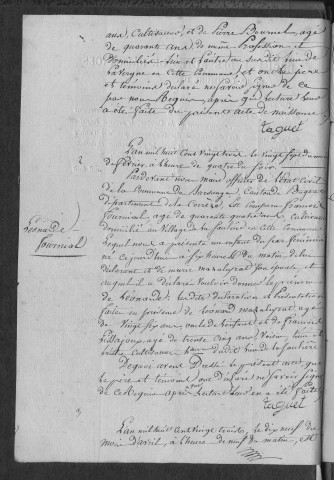 ans, Cultivateur, et de Pierre Bournel, agé
de quarante ans, de meme Profession et
Domiciliés l'un et l'autre au susdit lieu de
Lavergne en Cette Commune, et ont le pere
et temoins declaré ne savoir signer de ce
par nous Requis, après que lecture leur
a été faite du présent acte de naissance
taguet
L'an mil huit Cent Vingt trois, le Vingt sept du mois
de fevrier, à l'heure de quatre du soir
Pardevant nous maire officier de l'état Civil
de la Commune De Canton de
Département de la Corrèze, est Comparu françois
fournial, agé de quarante quatre ans, Cultivateur
Domicilié au Village de en Cette Commune
lequel nous a présenté un enfant du sexe féminin
né ce jourd'hui à six heures du matin, de lui
déclarant et de marie son épouse, et
auquel il a déclaré vouloir donner le prénom
de Léonarde, les dite declaration et présentation
faite en présence de Léonard agé
de Vingt six ans, oncle de l'enfant et de françois
agé de trente Cinq ans, Voisin, l'un et
l'autre Cultivateur
De quoi avons Dressé le présent acte que
le père et temoins ont déclaré ne savoir signer
de Ce Requis après lecture leur en a été faite
taguet
Léonarde
fournial
L'an mil huit Cent Vingt trois, le dix neuf du
mois d'avril, à l'heure de neuf du matin, est